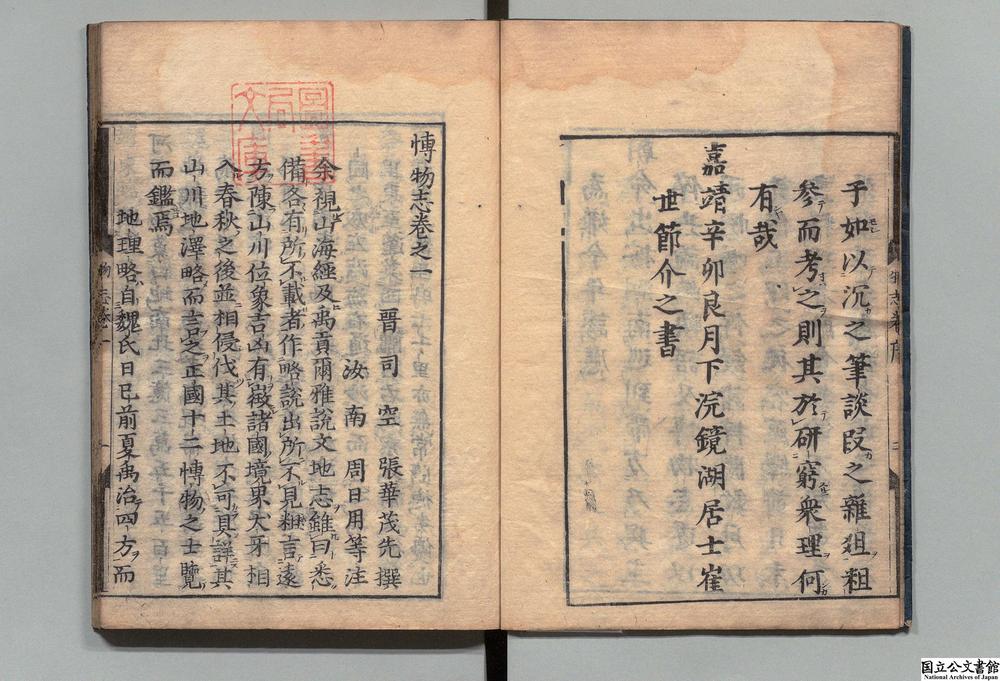 于如以沉之筆談段之雜爼粗
參而考之則其於研窮衆理何
有哉
嘉靖辛卯良月下浣鏡湖居士崔
世節介之書
愽物志卷之一
晋司空張華茂先撰
汝南周日用等注
余視山海經及禹貢爾雅說文地志雖曰悉
備各有所不載者作略說出所不見粗言遠
方陳山川位象吉凶有徵諸國境界犬牙相
入春秋之後並相侵伐其土地不可具詳其
山川地澤略而言之正國十二愽物之士覽
而鑑焉
地理略自魏氏日已前夏禹治四方而
圖書
局
文庫
国立公文書館
National Archives of Japan